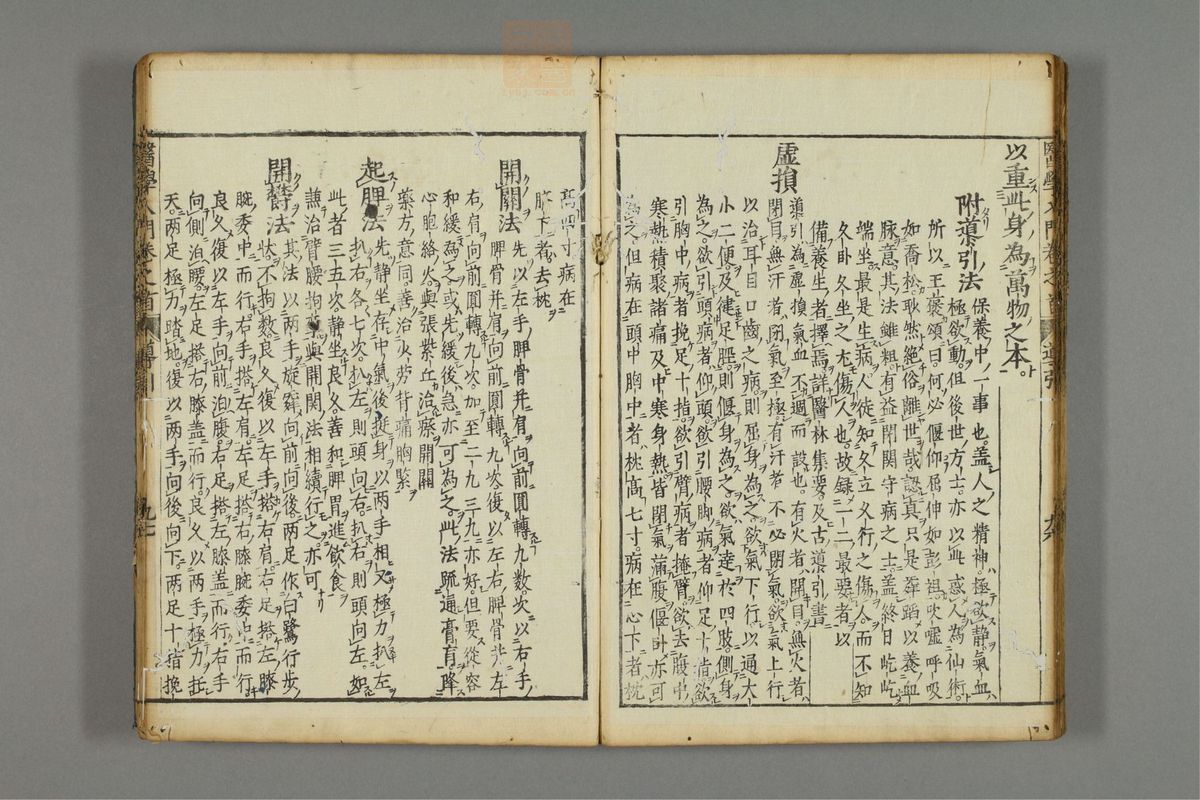 以重此身為萬物之本
附導引法
保養中一事也蓋人之精神極欲靜氣血
極欲動但後世方士亦以此惑人為仙術
所以王褒頌曰何必偃仰屈伸如彭祖吹噓呼吸
如喬松眇然絕俗離世哉認真只是舞蹈以養血
脉意其法雖粗有益閉關守病之士蓋終日屹屹
端坐最是生病人徒知久立久行之傷人而不知
久卧久坐之尤傷人也故錄一二最要者以
備養生者擇焉詳醫林集要及古導引書
虛損
導引為虛損氣血不週而設也有火者開目無火者
閉目無汗者閉氣至極有汗者不必閉氣欲氣上行
以治耳目口齒之病則屈身為之欲氣下行以通大
小二便及健足脛則偃身為之欲氣達於四肢側身
為之欲引頭病者仰頭欲引腰脚病者仰足十指欲
引胸中病者挽足十指欲引臂病者掩臂欲去腹中
寒熱積聚諸痛及中寒身熱皆閉氣滿腹偃卧亦可
為之但病在頭中胸中者枕高七寸病在心下者枕
高四寸病在
臍下者去枕
開關法
先以左手脾骨并肩向前圓轉九數次以右手
右肩向前圓轉九次加至二九三九亦好但要從容
和緩為之或先緩後急亦可為之此法疏通膏肓降
心胞絡火與張紫丘治瘵開關
藥方意同善治火勞背痛胸緊
起脾法
先靜坐存中氣後挺身以兩手相叉極力扒左
扒右各七次扒左則頭向右扒右則頭向左如
此者三五次靜坐良久善和脾胃進飲食
兼治臂腰拘攣與開關法相續行之亦可
開鬱法
其法以兩手旋𢳇向前向後兩足作白鷺行步
狀不拘數良久復以左手搭右肩右足搭左膝
腕委中而行右手搭左肩左足搭右膝腕委中而行
良久復以左手向前泊腹右足搭左膝蓋而行右手
向側泊腰左足搭右膝蓋而行良久以兩手極力托
天兩足極力踏地復以兩手向後向下兩足十指挽
醫學入門卷之首
導引